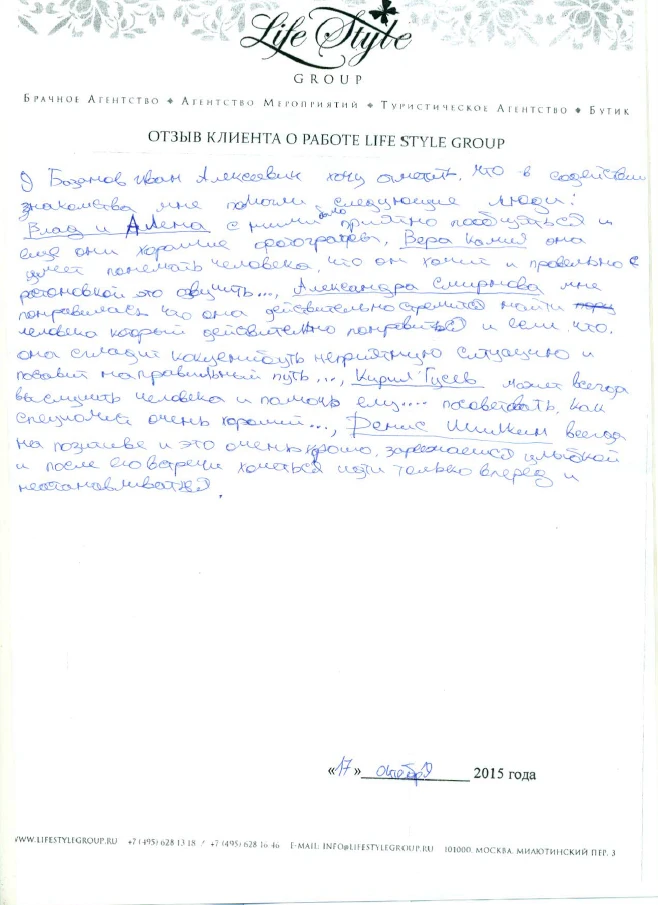 Life Style
GROUP
Брачное Агентство ◆ Агентство Мероприятий ◆ Туристическое Агентство ◆ Бутик
ОТЗЫВ КЛИЕНТА О РАБОТЕ LIFE STYLE GROUP
Я Базанов Иван Алексеевич хочу отметит, что в содействии
знакомства мне помогли следующие люди:
Влад и Алена с ними было приятно пообщаться и
еще они хорошие фотографы, Вера она
умеет понемать человека, что он хочет и провельно с
это озвучить..., Александра Смирнова мне
понравилась что она действительно стремится найти
человека который действительно понравиться и если что,
она сгладит какуенибуть неприятную ситуацию и
поставит направильный путь..., Кирил Гусев может всегда
выслушить человека и помочь ему.... посоветовать, как
специалист очень хороший..., Денис Шишкин всегда
на позитиве и это очень хорошо, заряжаешся улыбкой
и после его встречи хочеться идти только вперед и
неостанавливаться.
«17» октября 2015 года
WWW.LIFESTYLEGROUP.RU +7 (495) 628 13 18 / +7 (495) 628 16 46 E-MAIL: INFO@LIFESTYLEGROUP.RU 101000, МОСКВА, МИЛЮТИНСКИЙ ПЕР. 3